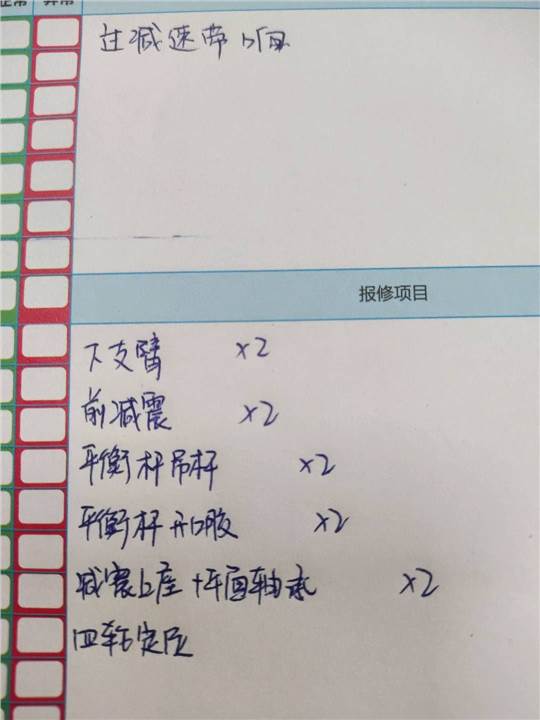 正常 异常
过减速带响
报修项目
下支臂 ×2
前减震 ×2
平衡杆吊杆 ×2
平衡杆开口胶 ×2
减震上座+平面轴承 ×2
四轮定位